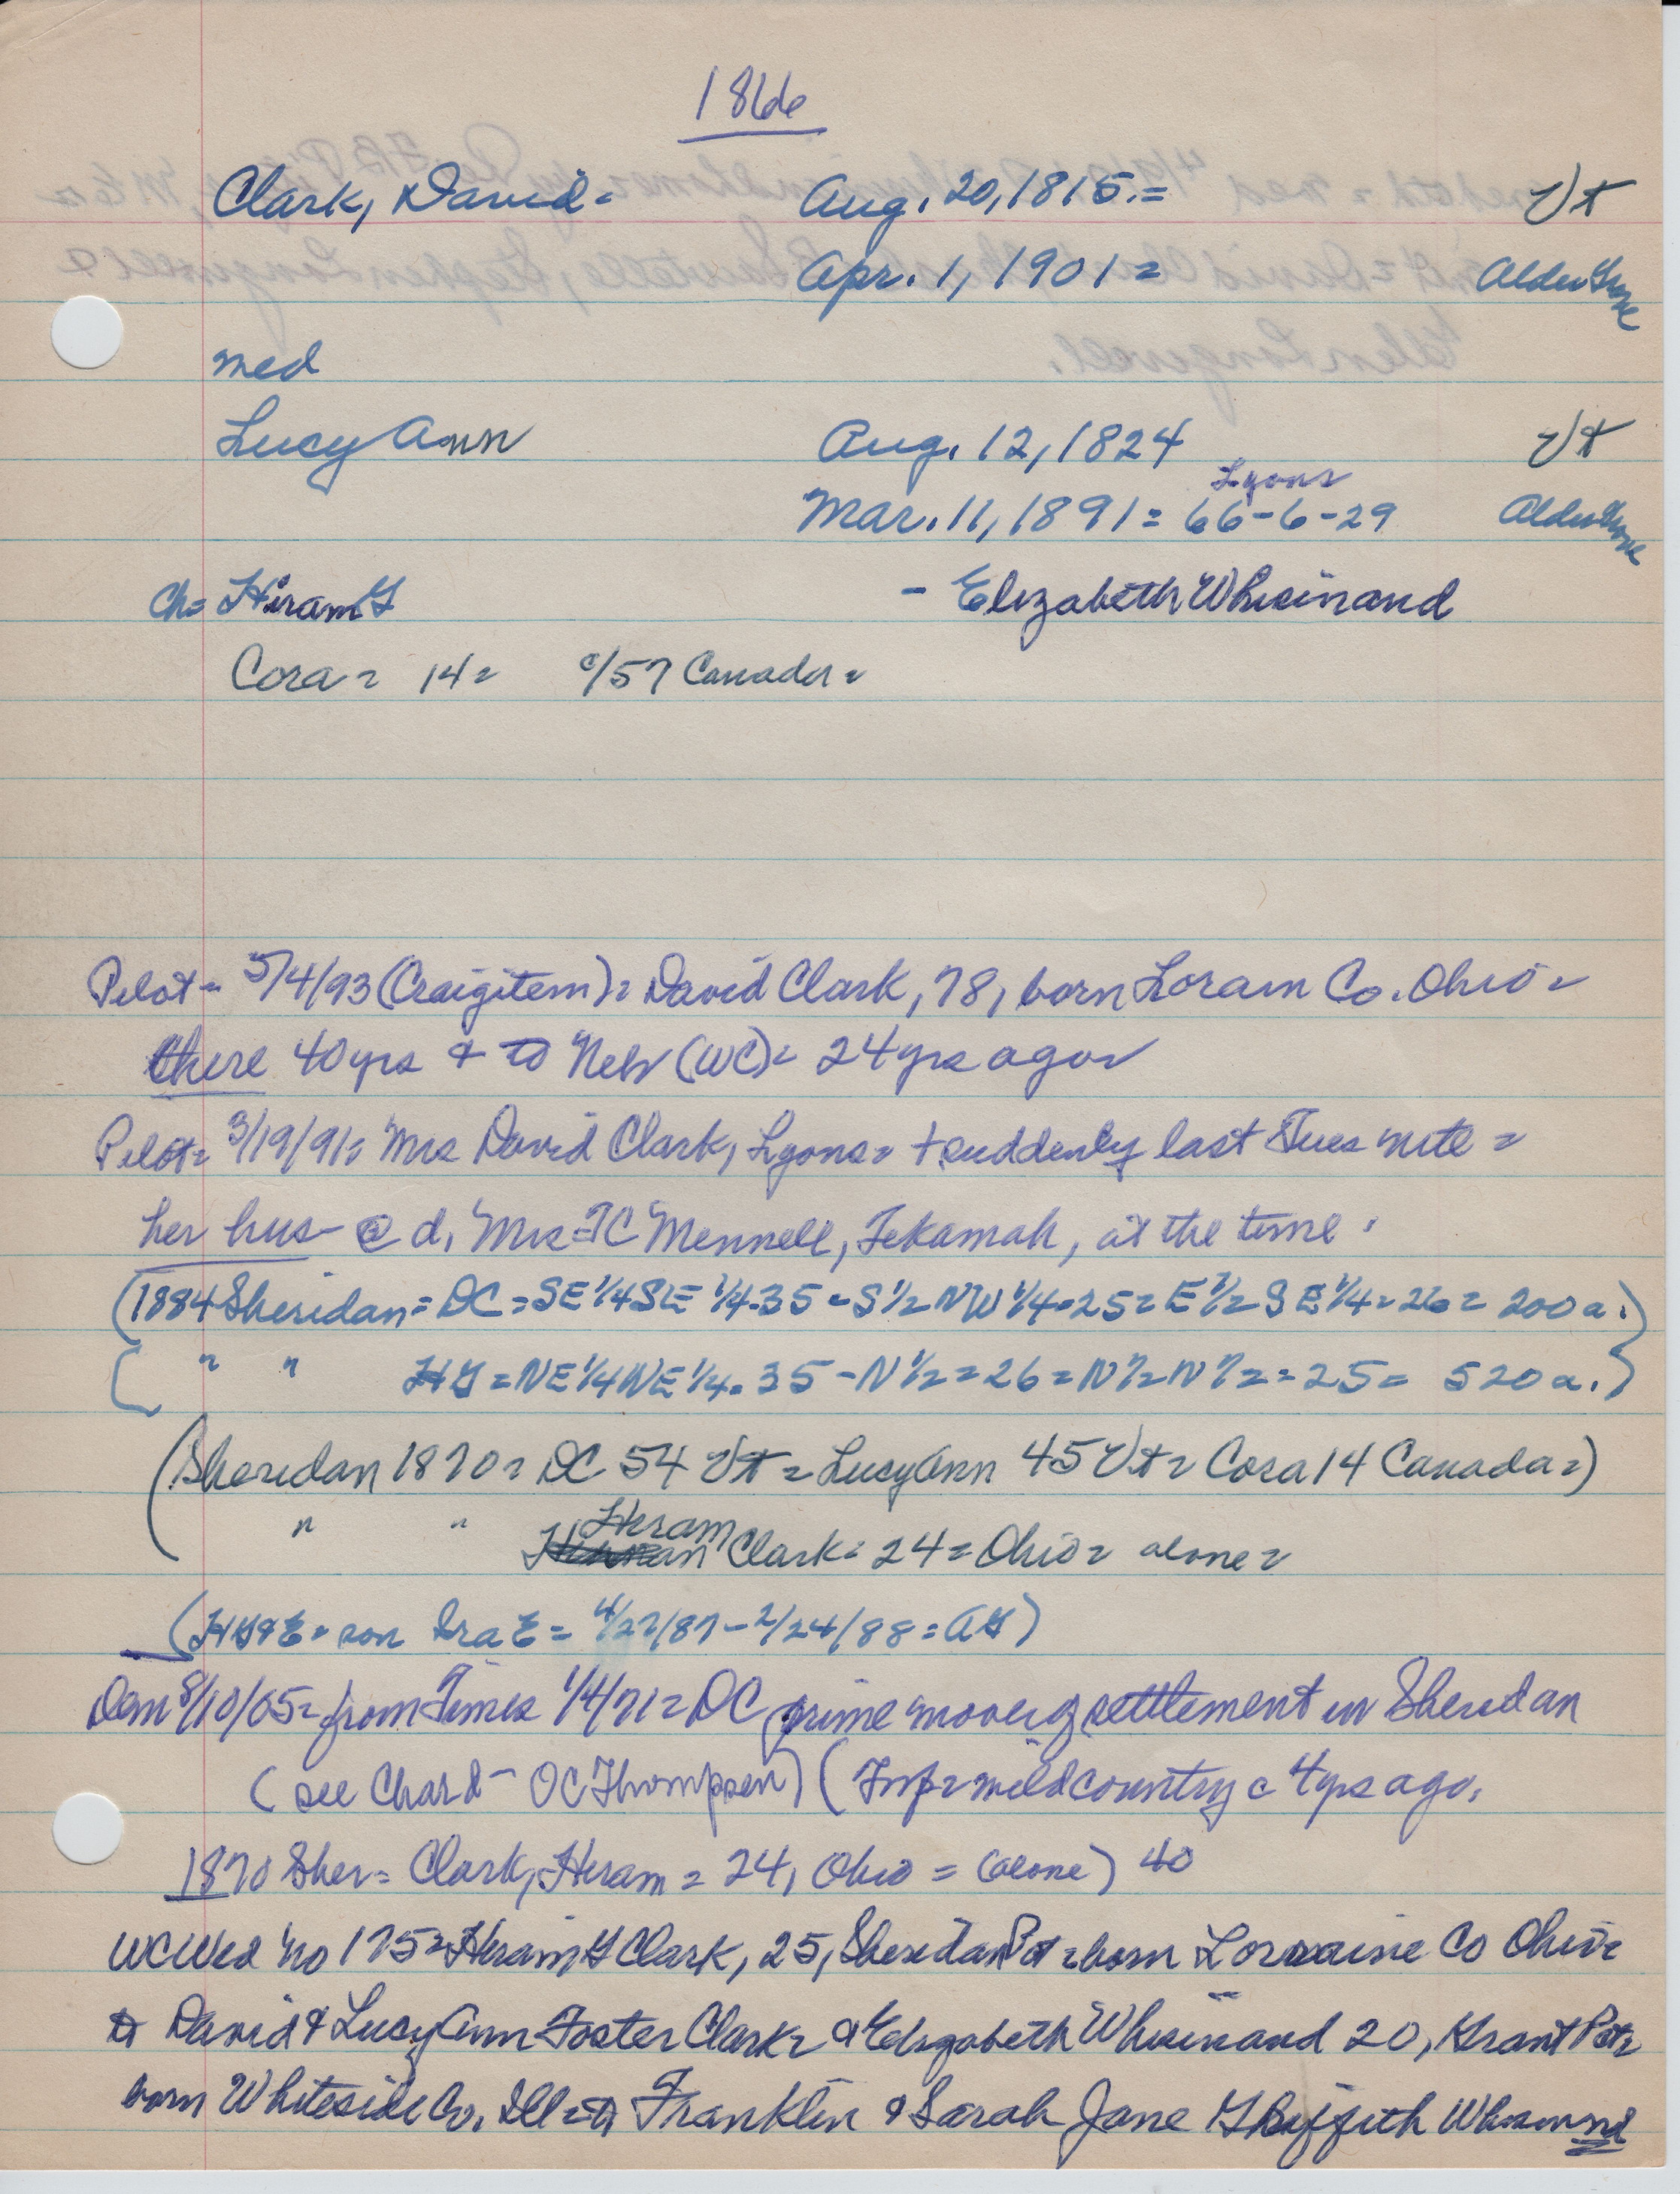 1866
Clark, David = Aug. 20, 1815. = Vt
Apr. 1, 1901 = Alder Grove
med
Lucy Ann Aug. 12, 1824 Vt
Lyons
Mar. 11, 1891 = 66-6-29 Alder Grove
Ch = Hiram G - Elizabeth Whisinand
Cora = 14 = c/57 Canada =
Pilot = 5/4/93 (Craig item) = David Clark, 78, born Lorain Co. Ohio =
there 40 yrs & to Neb (WC) = 24 yrs ago =
Pilot = 3/19/91 = Mrs David Clark, Lyons = + suddenly last Tues nite =
her hus - @ d, Mrs TC Mennell, Tekamah, at the time.
(1884 Sheridan = DC = SE 1/4 SE 1/4 - 35 = S 1/2 NW 1/4 - 25 = E 1/2 SE 1/4 = 26 = 200 a.)
( " " HG = NE 1/4 NE 1/4 - 35 - N 1/2 = 26 = N 1/2 N 1/2 = 25 = 520 a.)
(Sheridan 1870 = DC 54 Vt = Lucy Ann 45 Vt = Cora 14 Canada =)
" " Hiram Clark = 24 = Ohio = alone =
(HG & E = son Ira E = 4/27/87 - 2/24/88 = AG)
Dem 8/10/05 = from Times 1/4/71 = DC prime mover of settlement in Sheridan
(see Chard - OC Thompson) ( wild country c 4 yrs ago.
1870 Sher = Clark, Hiram = 24, Ohio = (alone) 40
WC Wed No 175 = Hiram G Clark, 25, Sheridan Pct = born Lorraine Co Ohio =
to David & Lucy Ann Foster Clark = & Elizabeth Whisinand 20, Grant Pct =
born Whiteside Co. Ill = to Franklin & Sarah Jane Griffith Whisinand